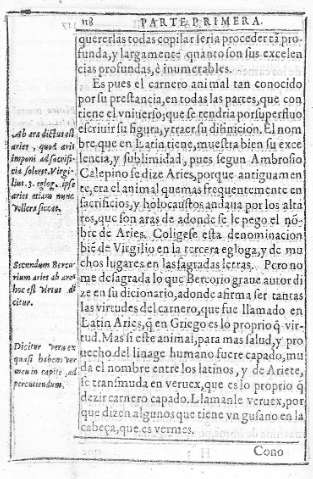 118 PARTE PRIMERA.
quererlas todas copilar seria proceder tã pro-
funda, y largamente quanto son sus excelen
cias profundas, è inumerables.
Es pues el carnero animal tan conocido
por su prestancia, en todas las partes, que con
tiene el vniuerso; que se tendria por superfluo
escriuir su figura, y traer su difinicion. El nom
bre, que en Latin tiene, muestra bien su exce
lencia, y sublimidad, pues segun Ambrosio
Calepino se dize Aries, porque antiguamen
te, era el animal que mas frequentemente en
sacrificios, y holocaustos andaua por los alta
res, que son aras de adonde se le pego el nõ-
bre de Aries. Coligese esta denominacion
biẽ de Virgilio en la tercera egloga, y de mu
chos lugares en las sagradas letras. Pero no
me desagrada lo que Bercorio graue autor di
ze en su dicionario, adonde afirma ser tantas
las virtudes del carnero, que fue llamado en
Latin Aries, q̃ en Griego es lo proprio q̃ vir-
tud. Mas si este animal, para mas salud, y pro
uecho del linage humano fuere capado, mu
da el nombre entre los latinos, y de Ariete,
se transmuda en veruex, que es lo proprio q̃
dezir carnero capado. Llamanle veruex, por
que dizen algunos que tiene vn gusano en la
cabeça, que es vermes.
Cono
Ab ara dictus est
aries, quod aris
imponi ad sacrifi-
cia soleret. Virgi-
lius. 3. eglog. ipse
aries etiam nunc
vellera siccat.
Secundum Bercu-
rium aries ab are-
hoc est virtus di
citur.
Dicitur veruex
quasi habens ver
mem in capite, ad
percutiendum.